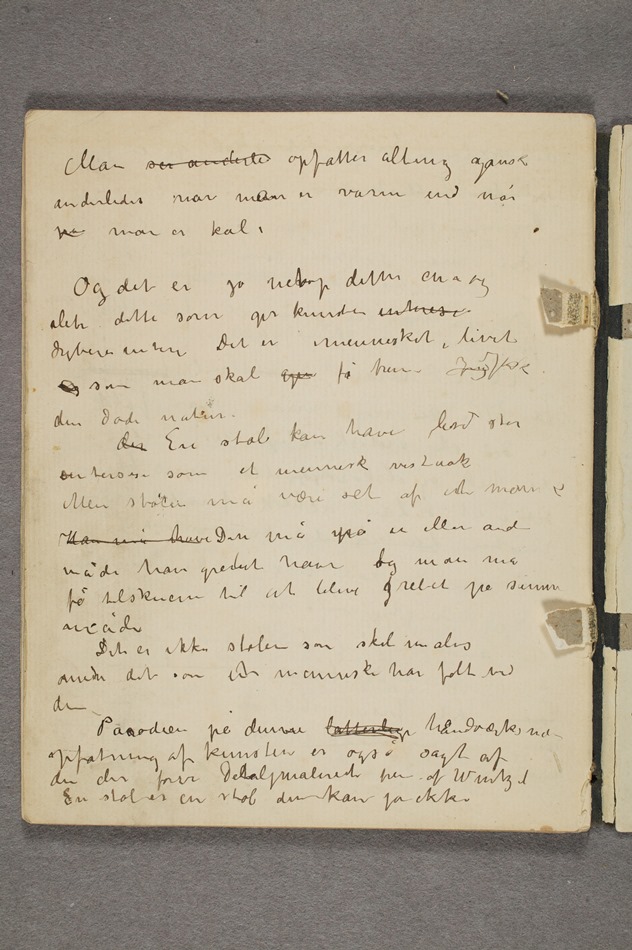 Man ser anderledes opfatter alting ganske
anderledes når man er varm end når
man er kold
Og det er jo netop dette ene og
alene dette som gir kunsten interesse
dybere mening Det er mennesket, livet
som man skal få frem Ikke
den døde natur.
En stol kan have lisså stor
interesse som et menneske
Men stolen må være set af et menneske
Man må have Den må på en eller anden
måde han grebet ham Og man må
få tilskueren til at blive grebet på samme
måde
Det er ikke stolen som skal males
men det som et menneske har følt ved
den
Parodien på denne latterlige håndværksmæ
opfatning af kunsten er også sagt af
den der fører Detaljmaleriets af Wentzel
En stol er en stol den kan jo ikke